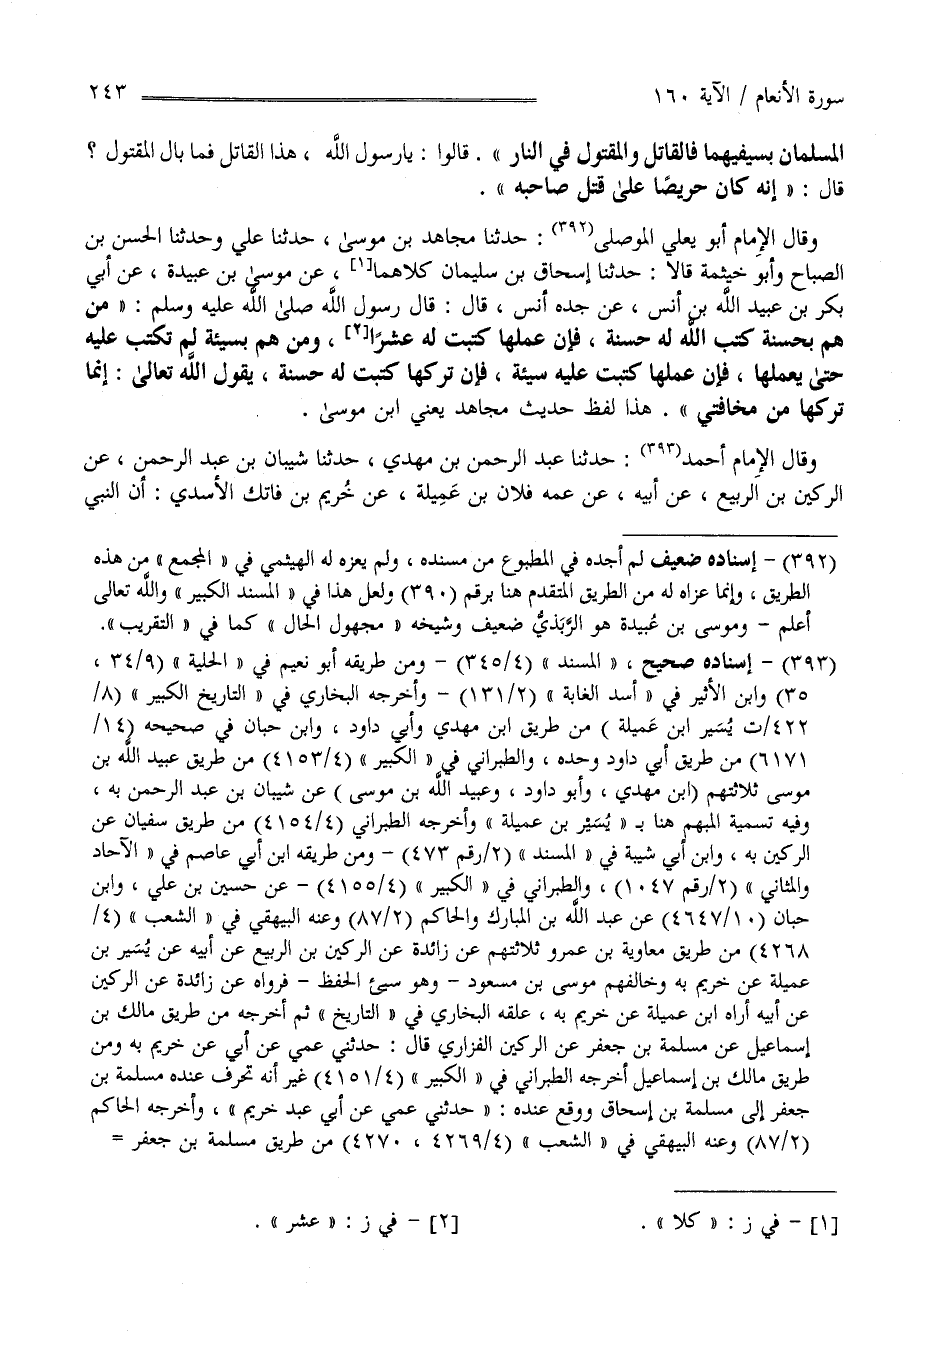 سورة الأنعام / الآية ١٦٠ ٢٤٣
المسلمان بسيفيهما فالقاتل والمقتول في النار » . قالوا : يارسول اللَّه ، هذا القاتل فما بال المقتول ؟
قال : « إنه كان حريصًا على قتل صاحبه » .
وقال الإمام أبو يعلي الموصلي(٣٩٢) : حدثنا مجاهد بن موسىٰ ، حدثنا علي وحدثنا الحسن بن
الصباح وأبو خيثمة قالا : حدثنا إسحاق بن سليمان كلاهما[١] ، عن موسىٰ بن عبيدة ، عن أبي
بكر بن عبيد اللَّه بن أنس ، عن جده أنس ، قال : قال رسول اللَّه صلىٰ اللَّه عليه وسلم : « من
هم بحسنة كتب اللَّه له حسنة ، فإن عملها كتبت له عشرًا[٢] ، ومن هم بسيئة لم تكتب عليه
حتىٰ يعملها ، فإن عملها كتبت عليه سيئة ، فإن تركها كتبت له حسنة ، يقول اللَّه تعالىٰ : إنما
تركها من مخافتي » . هذا لفظ حديث مجاهد يعني ابن موسىٰ .
وقال الإمام أحمد(٣٩٣) : حدثنا عبد الرحمن بن مهدي ، حدثنا شيبان بن عبد الرحمن ، عن
الركين بن الربيع ، عن أبيه ، عن عمه فلان بن عَمِيلة ، عن خُريم بن فاتك الأسدي : أن النبي
(٣٩٢) - إسناده ضعيف لم أجده في المطبوع من مسنده ، ولم يعزه له الهيثمي في « المجمع » من هذه
الطريق ، وإنما عزاه له من الطريق المتقدم هنا برقم (٣٩٠) ولعل هذا في « المسند الكبير » واللَّه تعالى
أعلم - وموسى بن عُبيدة هو الرَّبَذيُّ ضعيف وشيخه « مجهول الحال » كما في « التقريب ».
(٣٩٣) - إسناده صحيح ، « المسند » (٣٤٥/٤) - ومن طريقه أبو نعيم في « الحلية » (٣٤/٩ ،
٣٥) وابن الأثير في « أسد الغابة » (١٣١/٢) - وأخرجه البخاري في « التاريخ الكبير » (٨/
٤٢٢/ت يُسَير ابن عَميلة ) من طريق ابن مهدي وأبي داود ، وابن حبان في صحيحه (١٤/
٦١٧١) من طريق أبي داود وحده ، والطبراني في « الكبير » (٤١٥٣/٤) من طريق عبيد اللَّه بن
موسى ثلاثتهم (ابن مهدي ، وأبو داود ، وعبيد اللَّه بن موسى ) عن شيبان بن عبد الرحمن به ،
وفيه تسمية المبهم هنا بـ « يُسَيْر بن عميلة » وأخرجه الطبراني (٤١٥٤/٤) من طريق سفيان عن
الركين به ، وابن أبي شيبة في « المسند » (٢/رقم ٤٧٣) - ومن طريقه ابن أبي عاصم في « الآحاد
والمثاني » (٢/رقم ١٠٤٧) ، والطبراني في « الكبير » (٤١٥٥/٤) - عن حسين بن علي ، وابن
حبان (٤٦٤٧/١٠) عن عبد اللَّه بن المبارك والحاكم (٨٧/٢) وعنه البيهقي في « الشعب » (٤/
٤٢٦٨) من طريق معاوية بن عمرو ثلاثتهم عن زائدة عن الركين بن الربيع عن أبيه عن يُسَير بن
عميلة عن خريم به وخالفهم موسى بن مسعود - وهو سيئ الحفظ - فرواه عن زائدة عن الركين
عن أبيه أراه ابن عميلة عن خريم به ، علقه البخاري في « التاريخ » ثم أخرجه من طريق مالك بن
إسماعيل عن مسلمة بن جعفر عن الركين الفزاري قال : حدثني عمي عن أبي عن خريم به ومن
طريق مالك بن إسماعيل أخرجه الطبراني في « الكبير » (٤١٥١/٤) غير أنه تحرف عنده مسلمة بن
جعفر إلى مسلمة بن إسحاق ووقع عنده : « حدثني عمي عن أبي عبد خريم » ، وأخرجه الحاكم
(٨٧/٢) وعنه البيهقي في « الشعب » (٤٢٦٩/٤ ، ٤٢٧٠) من طريق مسلمة بن جعفر =
[١] - في ز : « كلا » . [٢] - في ز : « عشر » .